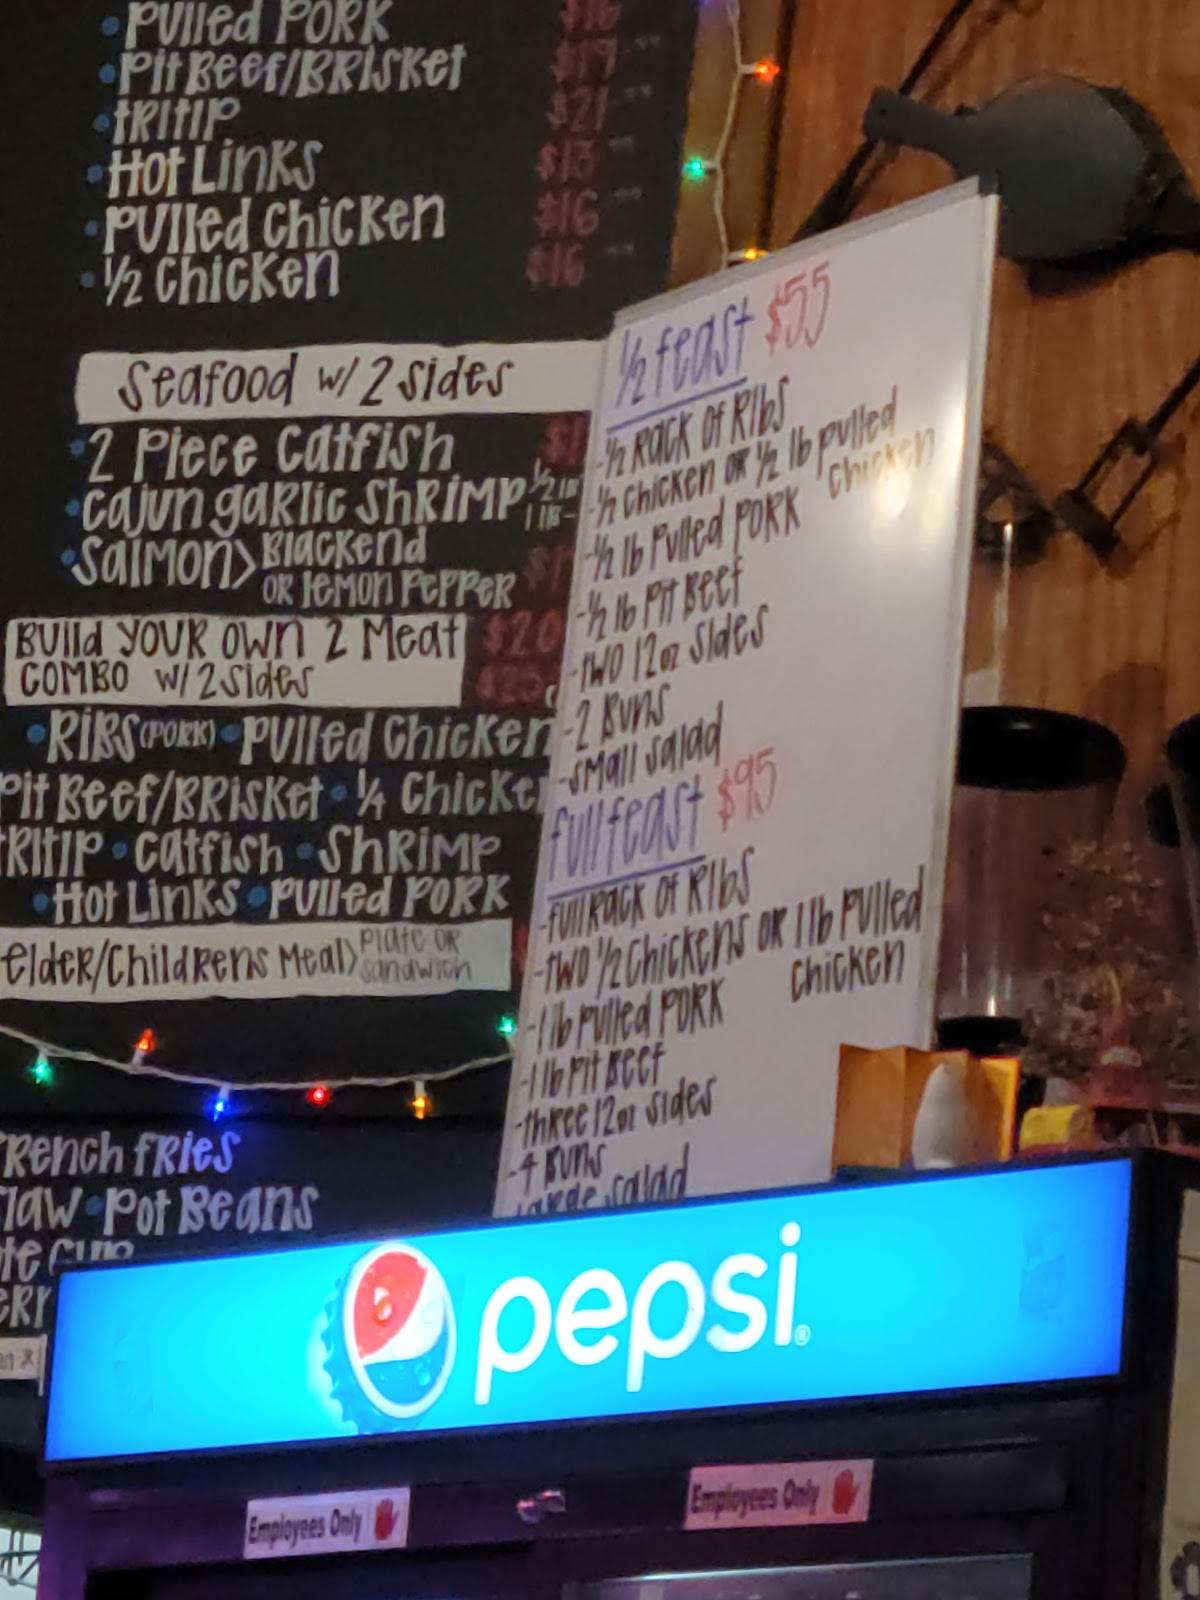 • Pulled Pork $16
• Pit Beef/Brisket $19
• tritip $21
• Hot Links $13
• Pulled Chicken $16
• ½ Chicken $16
Seafood w/ 2 sides
• 2 Piece Catfish
• Cajun garlic Shrimp ½ lb
1 lb-
• Salmon> Blackend
or lemon pepper
Build your own 2 Meat $20
combo w/ 2 sides
• Ribs (pork) • Pulled Chicken
Pit Beef/Brisket • ¼ Chicken
tritip • Catfish • Shrimp
• Hot Links • Pulled Pork
elder/Childrens Meal> Plate or
sandwich
french fries
slaw • Pot Beans
½ feast $55
-½ Rack of Ribs
-½ Chicken or ½ lb pulled
chicken
-½ lb Pulled Pork
-½ lb Pit Beef
-two 12oz sides
-2 Buns
-small salad
full feast $95
-full Rack of Ribs
-two ½ Chickens or 1 lb Pulled
chicken
-1 lb pulled Pork
-1 lb Pit Beef
-three 12oz sides
-4 Buns
large salad
pepsi®
Employees Only
Employees Only